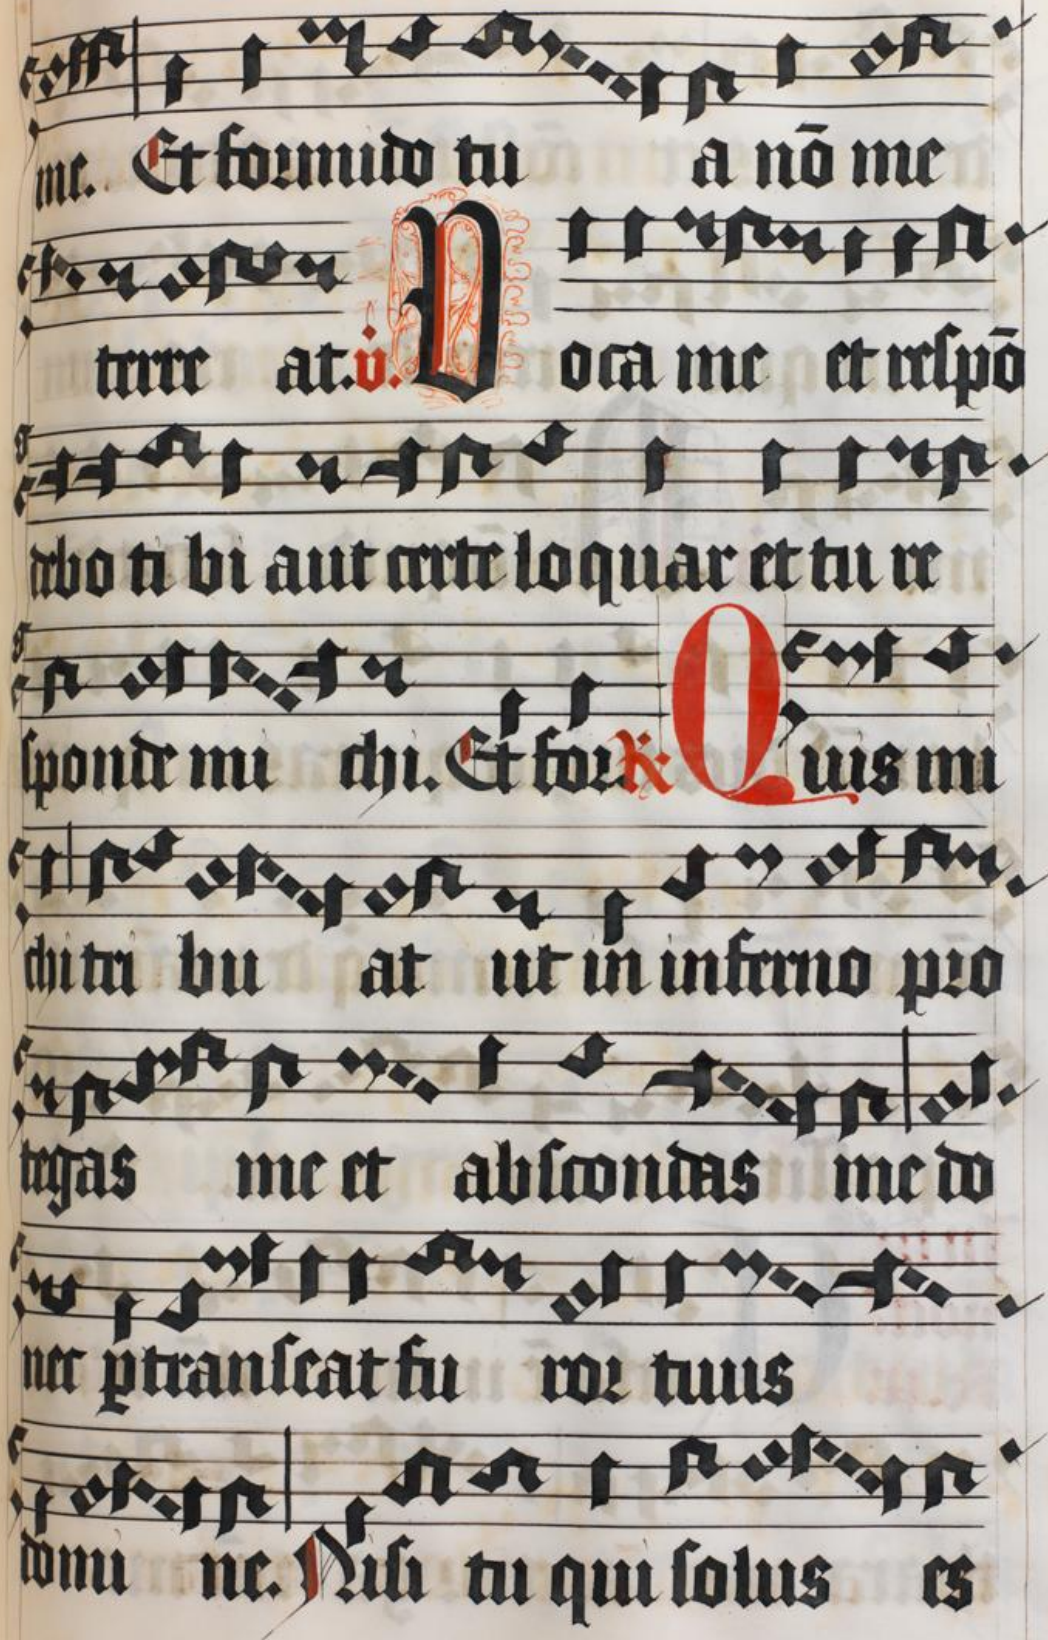 me. Et formido tu a nō me
terre at. v. Voca me et respō
debo ti bi aut certe loquar et tu re
sponde mi chi. Et for R Quis mi
chi tri bu at ut in inferno pro
tegas me et abscondas me do
nec ꝑtranseat fu ror tuus
domi ne. Nisi tu qui solus es